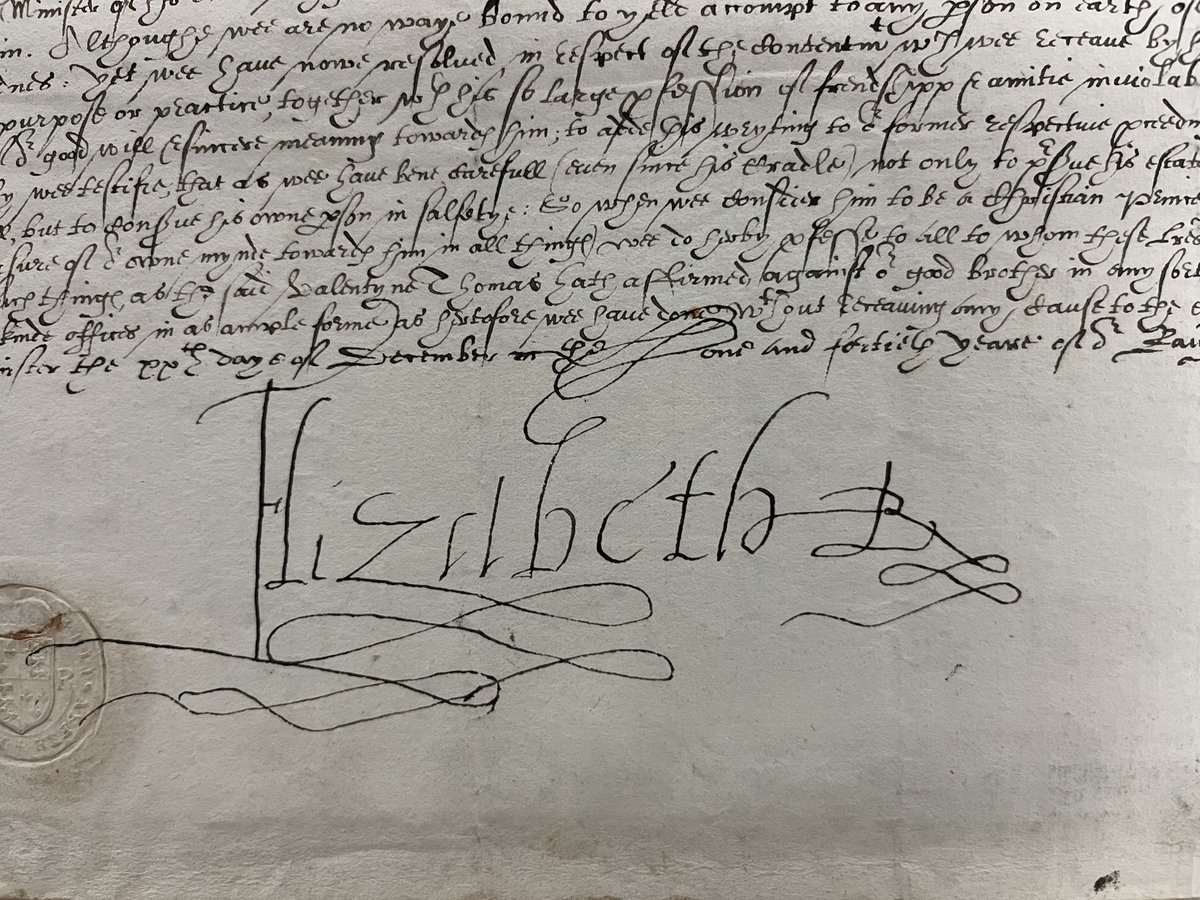 Minister of his
in. Althoughe wee are no waye bound to yeld accompt to any pson on earth, of
nes: yet wee have nowe resolved in respect of the contentmt wch wee receave by h
purpose or practice, together wth his so large pfession of frendshipp & amitie inviolab
or good will & sincere meaning towards him; to adde this wryting to or former respective pceedin
y wee testifie, that as wee have bene carefull (even since his Cradle) not only to pserve his estate
, but to conserve his owne pson in safetye: So when wee consider him to be a Christian Prince
sure of or owne mynde towards him in all things) wee do hereby pfesse to all to whom these lres
such things as the said Valentyne Thomas hath affirmed against or good brother in any sort
kinde offices in as ample forme, as heretofore wee have done wthout receaving any cause to the c
inster the xxth daye of December in the one and fortieth yeare of or Rai
Elizabeth R